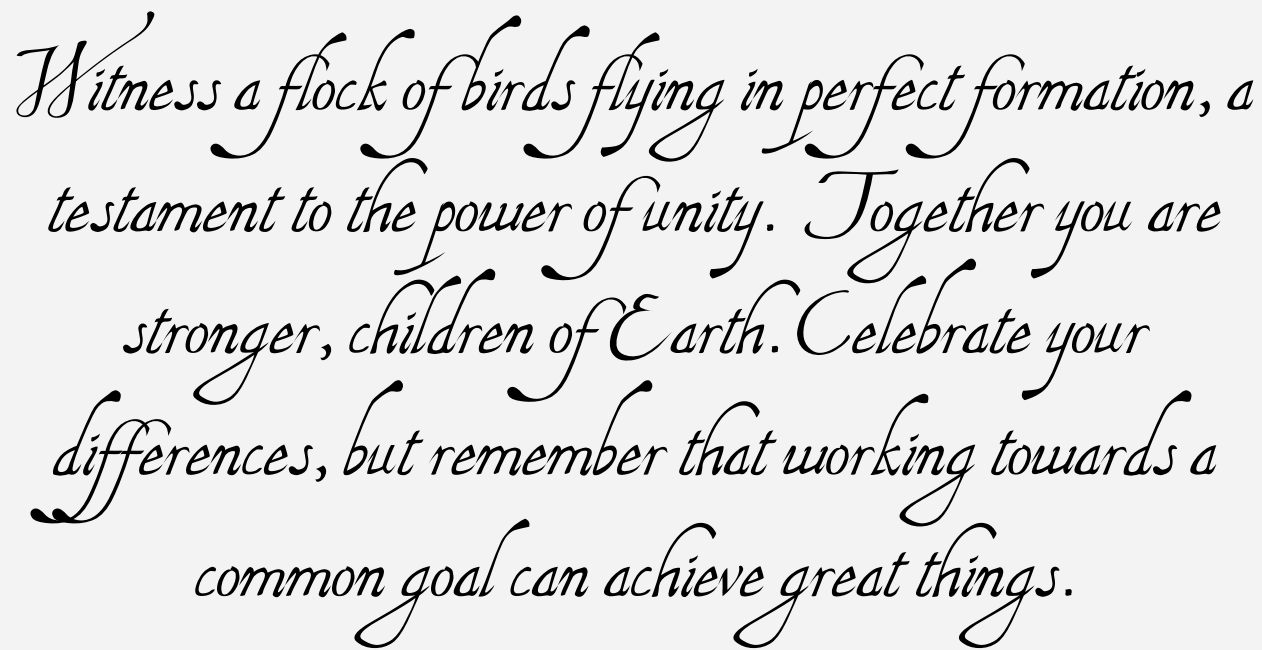 Witness a flock of birds flying in perfect formation, a
testament to the power of unity. Together you are
stronger, children of Earth. Celebrate your
differences, but remember that working towards a
common goal can achieve great things.